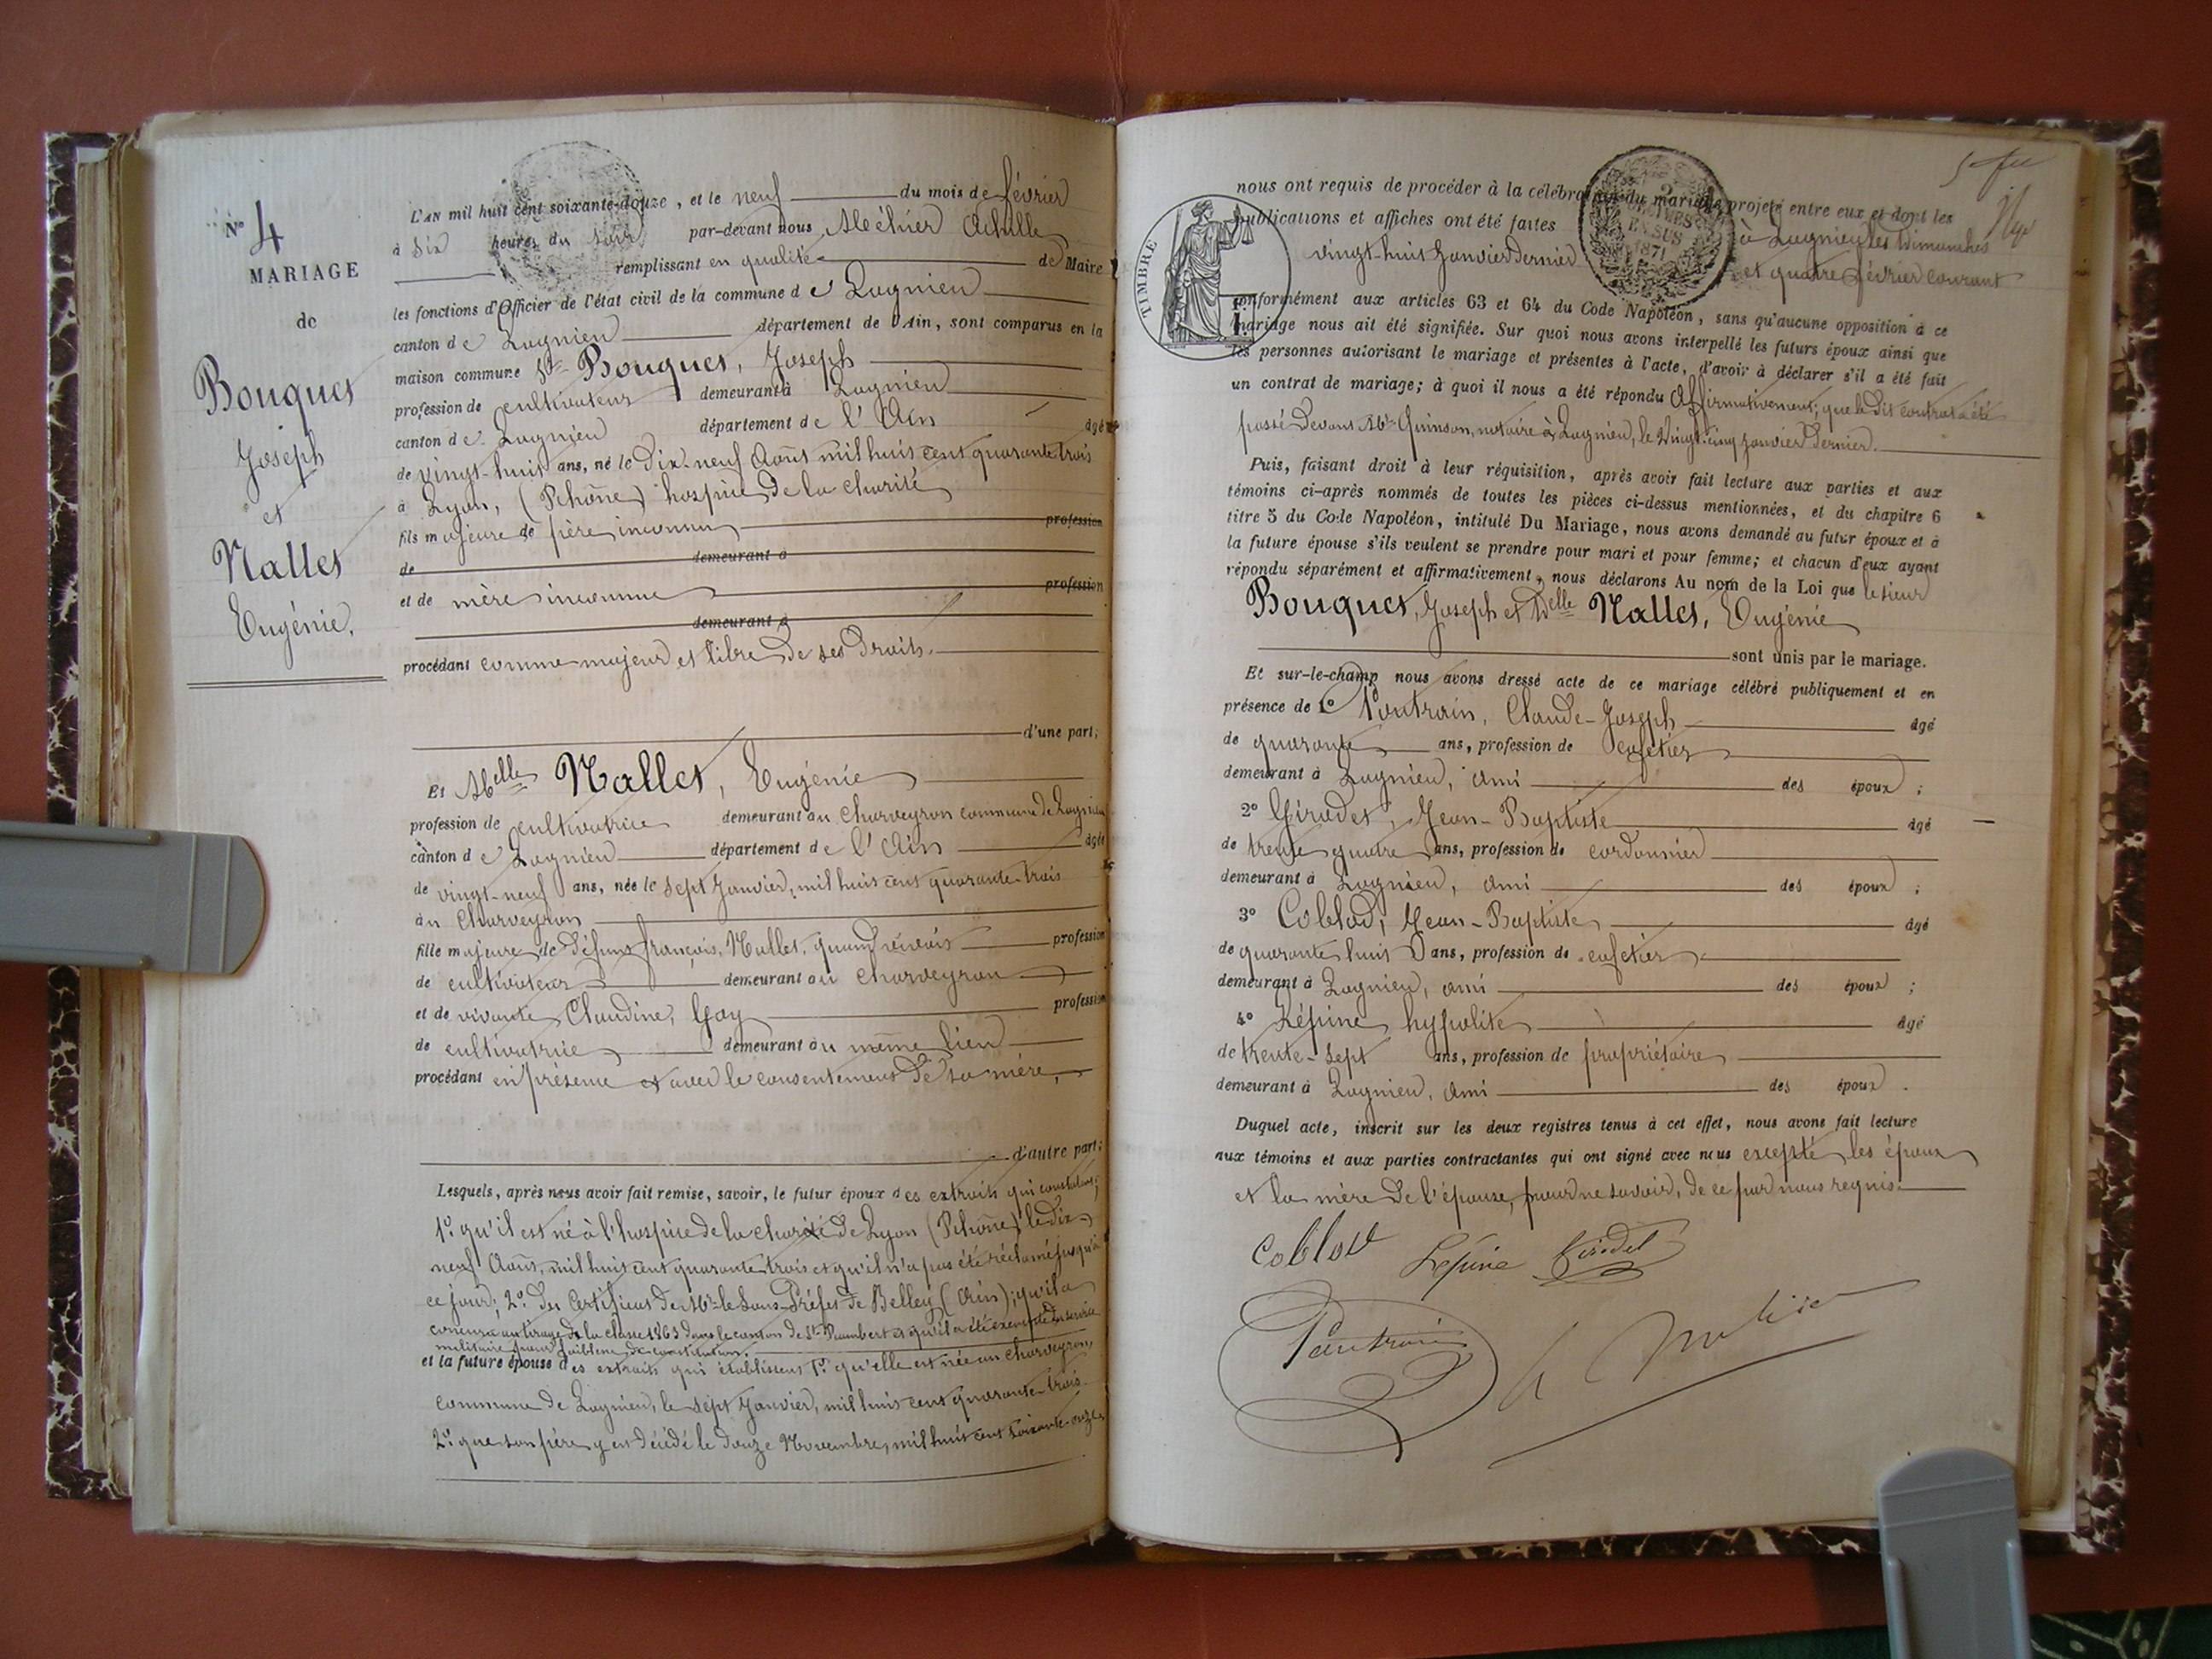 N° 4
MARIAGE
de
Bouques
Joseph
et
Nallet
Eugénie.
L'AN mil huit cent soixante-douze, et le neuf du mois de février
à Six heures du Soir par-devant nous Méhier Achille
remplissant en qualité de Maire
les fonctions d'Officier de l'état civil de la commune de Lagnieu
canton de Lagnieu département de l'Ain, sont comparus en la
maison commune Sr Bouques, Joseph
profession de cultivateur demeurant à Lagnieu
canton de Lagnieu département de l'Ain âgé
de vingt-huit ans, né le Dix-neuf Août mil huit cent quarante trois
à Lyon, (Rhône) hospice de la charité
fils majeur de père inconnu profession
de demeurant à
et de mère inconnue profession
demeurant à
procédant comme majeur et libre de ses Droits.
d'une part;
Et Melle Nallet, Eugénie
profession de cultivatrice demeurant au Charveyron commune de Lagnieu
canton de Lagnieu département de l'Ain âgée
de vingt-neuf ans, née le Sept Janvier, mil huit cent quarante-trois
au Charveyron
fille majeure de Défunt françois, Nallet, quand vivait profession
de cultivateur demeurant au Charveyron
et de vivante Claudine, Gay profession
de cultivatrice demeurant au même lieu
procédant en présence et avec le consentement de sa mère,
d'autre part;
Lesquels, après nous avoir fait remise, savoir, le futur époux des extraits qui constatent;
1° qu'il est né à l'hospice de la charité de Lyon (Rhône) le Dix
neuf Août, mil huit cent quarante trois et qu'il n'a pas été réclamé jusqu'à
ce jour; 2° Du Certificat de Mr le Sous-Préfet de Belley (Ain); qu'il a
concouru au tirage de la classe 1863 dans le canton de St Rambert et qu'il a été exempté du service
militaire pour faiblesse de constitution.
et la future épouse des extraits qui établissent 1° qu'elle est née au Charveyron,
commune de Lagnieu, le Sept Janvier, mil huit cent quarante-trois
2° que son père y est décédé le Douze Novembre, mil huit cent soixante-onze
TIMBRE
nous ont requis de procéder à la célébration du mariage projeté entre eux et dont les
publications et affiches ont été faites à Lagnieu les Dimanches
vingt-huit Janvier Dernier et quatre février courant
conformément aux articles 63 et 64 du Code Napoléon, sans qu'aucune opposition à ce
mariage nous ait été signifiée. Sur quoi nous avons interpellé les futurs époux ainsi que
les personnes autorisant le mariage et présentes à l'acte, d'avoir à déclarer s'il a été fait
un contrat de mariage; à quoi il nous a été répondu Affirmativement; que le Dit contrat a été
passé Devant Me Quinson, notaire à Lagnieu, le Vingt-cinq janvier Dernier.
Puis, faisant droit à leur réquisition, après avoir fait lecture aux parties et aux
témoins ci-après nommés de toutes les pièces ci-dessus mentionnées, et du chapitre 6
titre 5 du Code Napoléon, intitulé Du Mariage, nous avons demandé au futur époux et à
la future épouse s'ils veulent se prendre pour mari et pour femme; et chacun d'eux ayant
répondu séparément et affirmativement, nous déclarons Au nom de la Loi que le sieur
Bouques, Joseph et Delle Nallet, Eugénie
sont unis par le mariage.
Et sur-le-champ nous avons dressé acte de ce mariage célébré publiquement et en
présence de 1° Pontrain, Claude-Joseph âgé
de quarante ans, profession de cafetier
demeurant à Lagnieu, ami des époux;
2° Giradet, Jean-Baptiste âgé
de trente quatre ans, profession de cordonnier
demeurant à Lagnieu, ami des époux;
3° Coblod, Jean-Baptiste âgé
de quarante huit ans, profession de cafetier
demeurant à Lagnieu, ami des époux;
4° Lépine hypolite âgé
de trente-sept ans, profession de propriétaire
demeurant à Lagnieu, ami des époux.
Duquel acte, inscrit sur les deux registres tenus à cet effet, nous avons fait lecture
aux témoins et aux parties contractantes qui ont signé avec nous excepté les époux
et la mère de l'épouse, pour ne savoir, de ce par nous requis.
Coblod Lépine Girodet
Pautrain